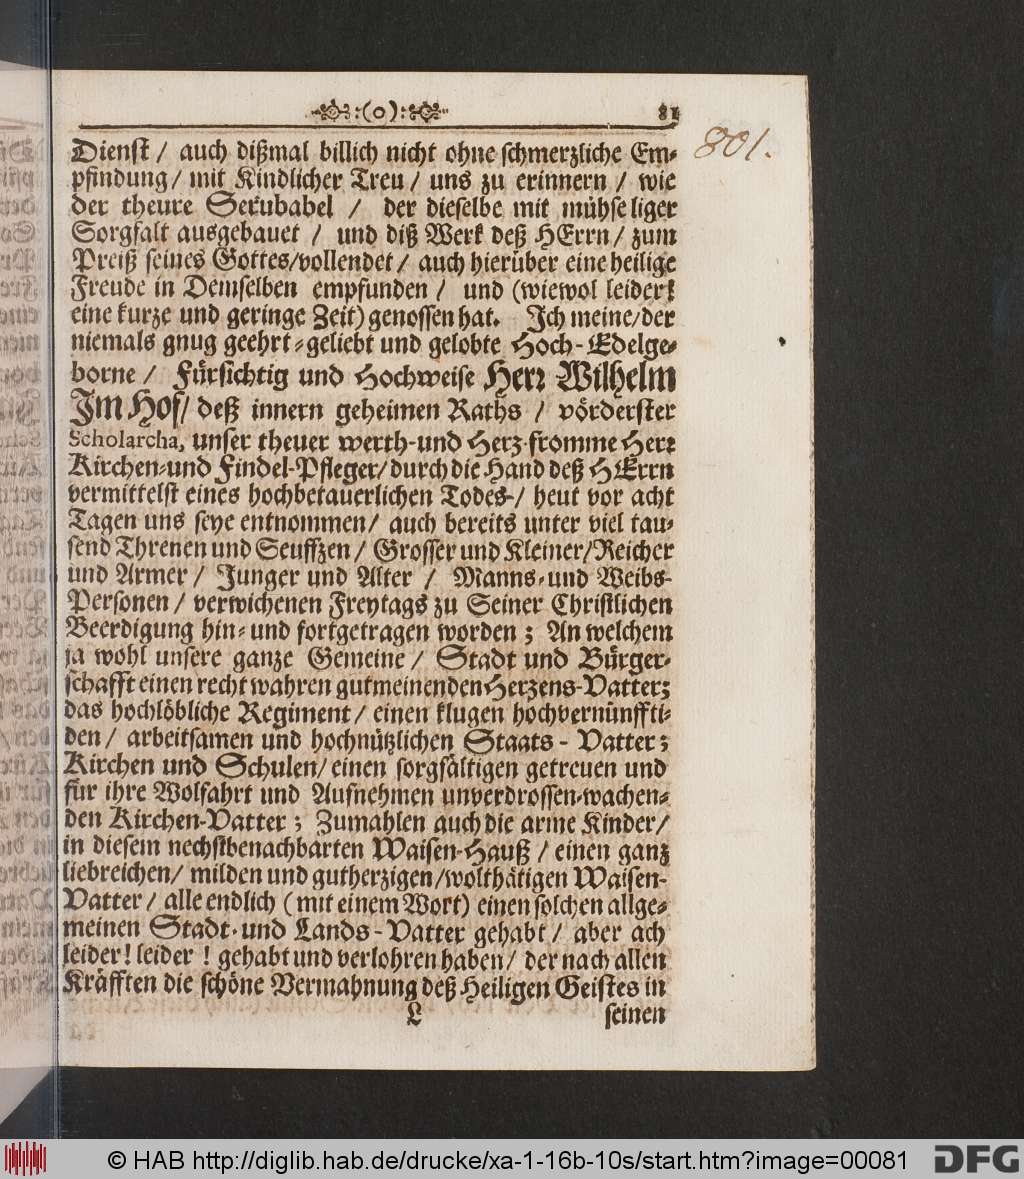 :(o): 81
801.
Dienst / auch dißmal billich nicht ohne schmerzliche Em-
pfindung / mit Kindlicher Treu / uns zu erinnern / wie
der theure Serubabel / der dieselbe mit mühseliger
Sorgfalt ausgebauet / und diß Werk deß HErrn / zum
Preiß seines Gottes/vollendet / auch hierüber eine heilige
Freude in Demselben empfunden / und (wiewol leider!
eine kurze und geringe Zeit) genossen hat. Ich meine/der
niemals gnug geehrt-geliebt und gelobte Hoch-Edelge-
borne / Fürsichtig und Hochweise Herr Wilhelm
Im Hof/ deß innern geheimen Raths / vörderster
Scholarcha, unser theuer werth-und Herz-fromme Herr
Kirchen-und Findel-Pfleger/durch die Hand deß HErrn
vermittelst eines hochbetauerlichen Todes-/ heut vor acht
Tagen uns seye entnommen/ auch bereits unter viel tau-
send Threnen und Seuffzen / Grosser und Kleiner/Reicher
und Armer / Junger und Alter / Manns-und Weibs-
Personen / verwichenen Freytags zu Seiner Christlichen
Beerdigung hin-und fortgetragen worden ; An welchem
ja wohl unsere ganze Gemeine / Stadt und Bürger-
schafft einen recht wahren gutmeinenden Herzens-Vatter;
das hochlöbliche Regiment / einen klugen hochvernünffti-
den / arbeitsamen und hochnützlichen Staats-Vatter;
Kirchen und Schulen/ einen sorgfältigen getreuen und
für ihre Wolfahrt und Aufnehmen unverdrossen-wachen-
den Kirchen-Vatter ; Zumahlen auch die arme Kinder/
in diesem nechstbenachbarten Waisen-Hauß / einen ganz
liebreichen/ milden und gutherzigen/wolthätigen Waisen-
Vatter / alle endlich (mit einem Wort) einen solchen allge-
meinen Stadt-und Lands-Vatter gehabt / aber ach
leider! leider ! gehabt und verlohren haben/ der nach allen
Kräfften die schöne Vermahnung deß Heiligen Geistes in
L seinen
© HAB http://diglib.hab.de/drucke/xa-1-16b-10s/start.htm?image=00081
DFG